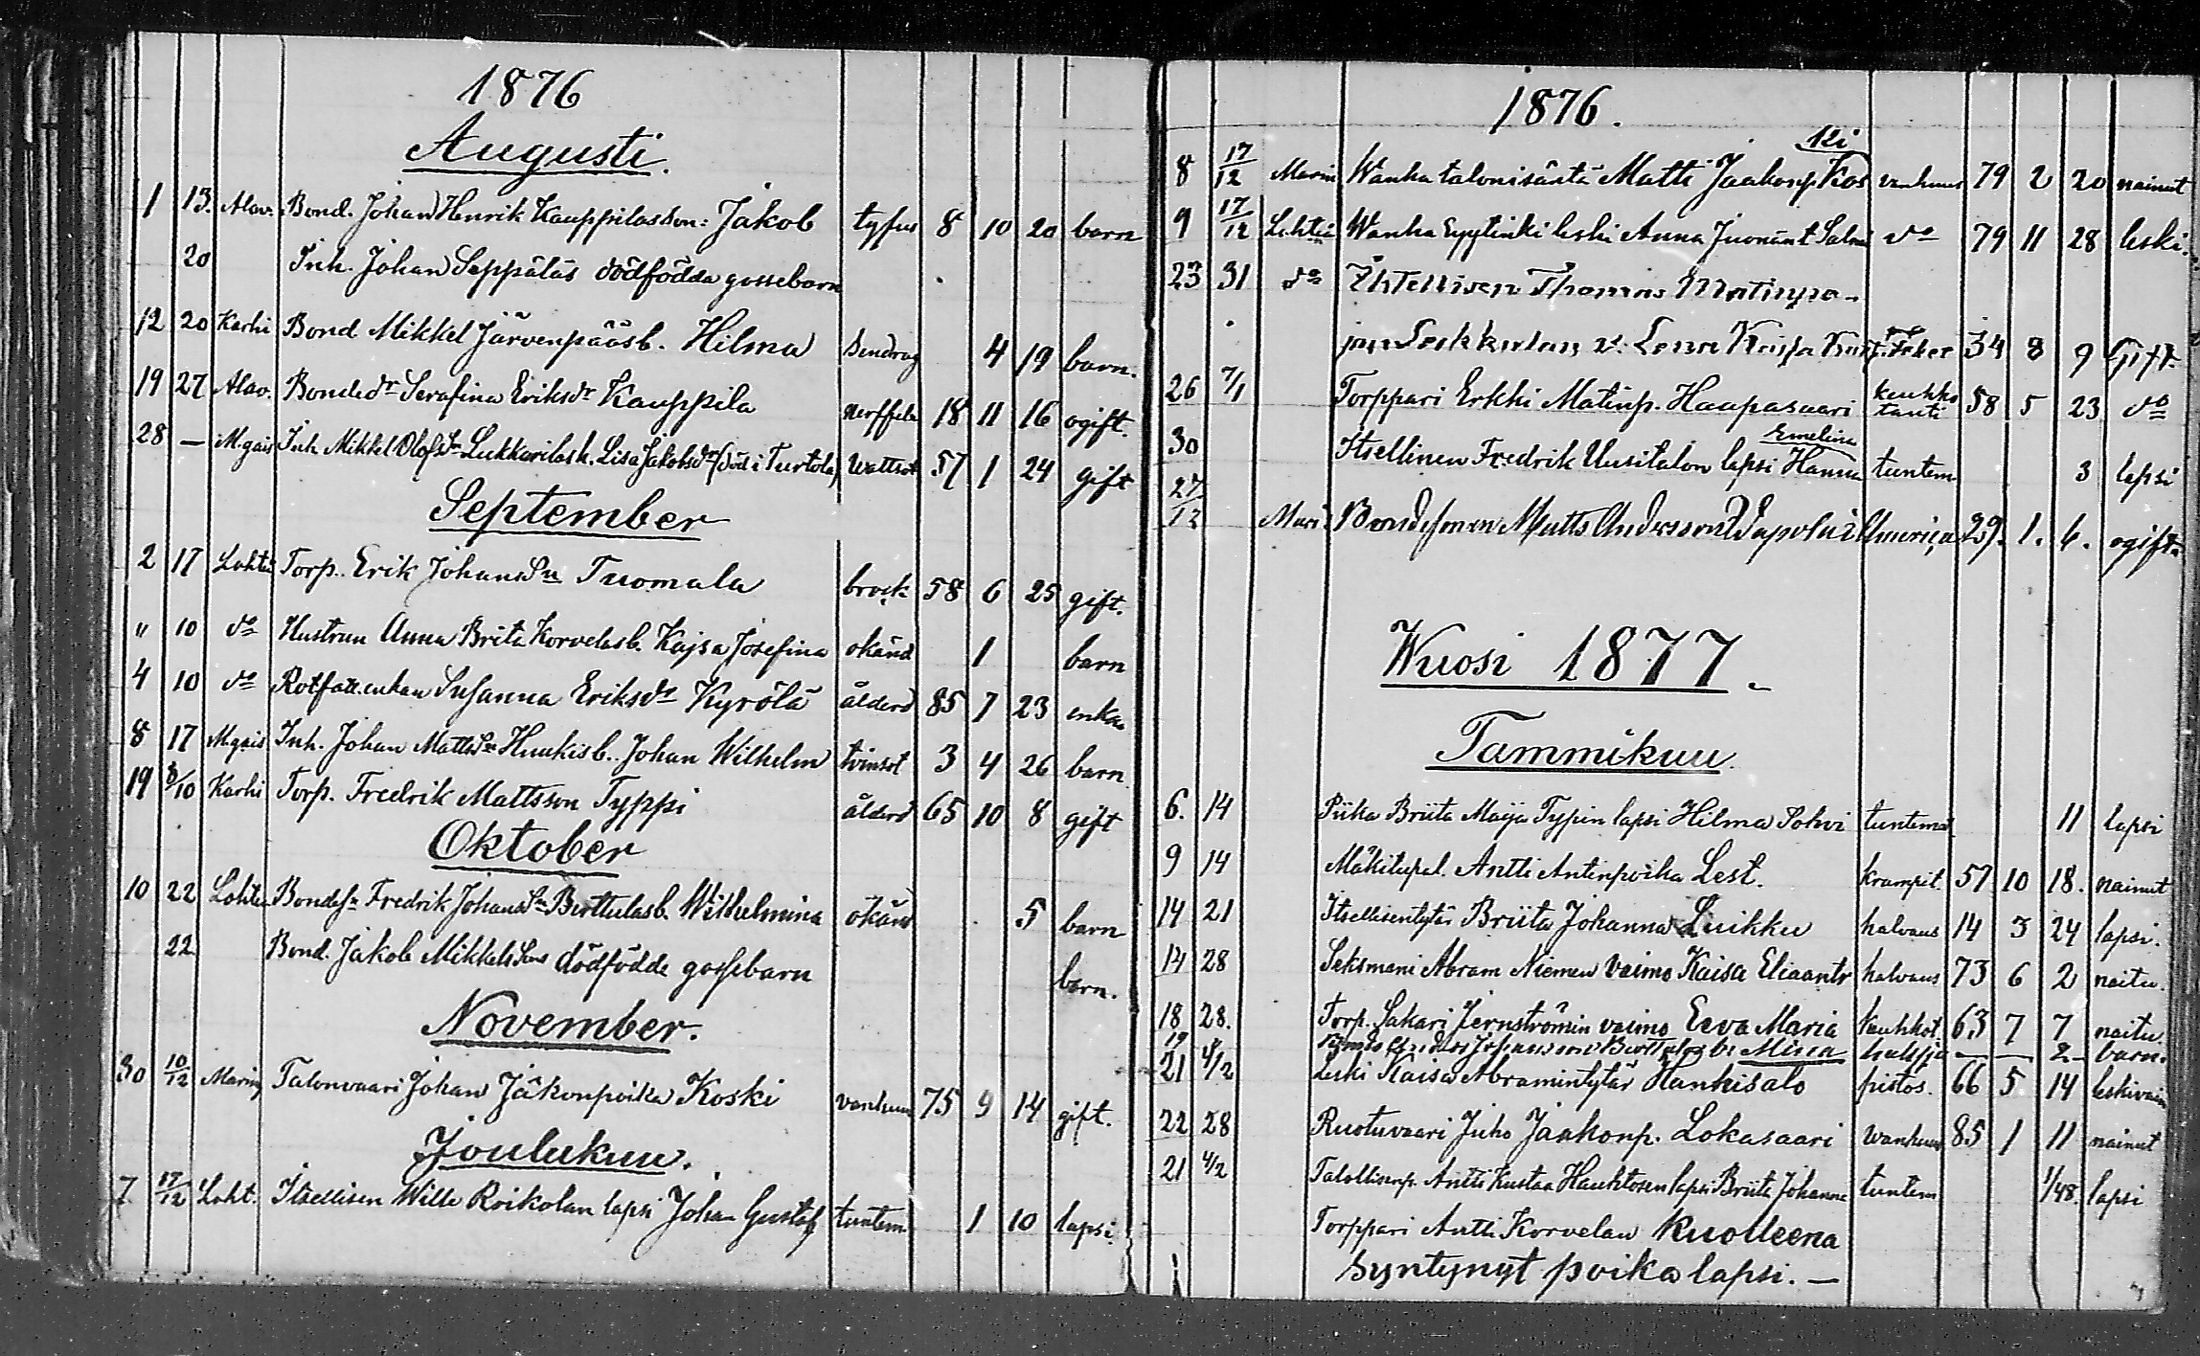 1876
Augusti.
1 13. Alav. Bond. Johan Henrik Kauppilas son: Jakob tyfus 8 10 20 barn
20 Inh. Johan Seppäläs dödfödda gossebarn
12 20 Karhi Bond Mikkel Järvenpääs b. Hilma 4 19 barn.
19 27 Alav. Bondedr Serafina Eriksdr Kauppila 18 11 16 ogift.
28 — M.gais Inh. Mikkel Olofsn Lukkarilas h. Lisa Jakobsdr (död i Turtola) Wattsot 57 1 24 gift
September
2 17 Lohta Torp. Erik Johanssn Tuomala brock 58 6 25 gift.
" 10 do Hustrun Anna Brita Korvelas b. Kajsa Josefina okänd 1 barn
4 10 do Rotfatt.enkan Susanna Eriksdr Kyrölä ålderd 85 7 23 enka
8 17 M.gais Inh. Johan Mattssn Huukis b. Johan Wilhelm tvinsot 3 4 26 barn
19 8/10 Karhi Torp. Fredrik Mattsson Typpi ålderd 65 10 8 gift
Oktober
10 22 Lohta Bondesn Fredrik Johanssn Birttulas b. Wilhelmina okänd 5 barn
22 Bond. Jakob Mikkelssons dödfödde gossebarn barn.
November.
30 10/12 Marin Talonvaari Johan Jäkonpoika Koski vanhuus 75 9 14 gift.
Joulukuu.
7 17/12 Loht. Itsellisen Wille Roikolan lapsi Johan Gustaf tuntem 1 10 lapsi
1876.
8 17/12 Marin Wanha talonisäntä Matti Jaakonp. Koski vanhuus 79 2 20 nainut
9 17/12 Lohta Wanha leski Anna Juonant. Salmi do 79 11 28 leski.
23 31 do Itstellisen Thomas Matinpo-
jan v: Lena Kaisa 34 8 9 Gift.
26 7/1 Torppari Erkki Matinp. Haapasaari keuhko tauti 58 5 23 do
30 Itsellinen Fredrik Uusitalon lapsi Hanna Emelina tuntem 3 lapsi
27/12 Mari. Bondesonen Matts Andersson i America 29. 1. 6. ogift.
Wuosi 1877.
Tammikuu.
6. 14 Piika Briita Maija Typin lapsi Hilma Sohvi tuntemat 11 lapsi
9 14 Mäkitupal. Antti Antinpoika Lest. krampit. 57 10 18. nainut
14 21 Itsellisentytär Briita Johanna Luikku halvaus 14 3 24 lapsi.
14 28 Seksmani Abram Niemen vaimo Kaisa Eliaantr halvaus 73 6 2 naitu.
18 28. Torp. Sakari Jernströmin vaimo Eeva Maria keuhkot 63 7 7 naitu.
19 b. Mina — — 2 — barn.
21 4/2 Leski Kaisa Abramintytär Hankisalo pistos. 66 5 14 leskivaim
22 28 Ruotuvaari Juho Jaakonp. Lokasaari wanhuus 85 1 11 nainut
21 4/2 Talollisenp. Antti Kustaa Hauhtosen lapsi Briita Johanna tuntem 1/48. lapsi
Torppari Antti Korvelan kuolleena
syntynyt poika lapsi. —